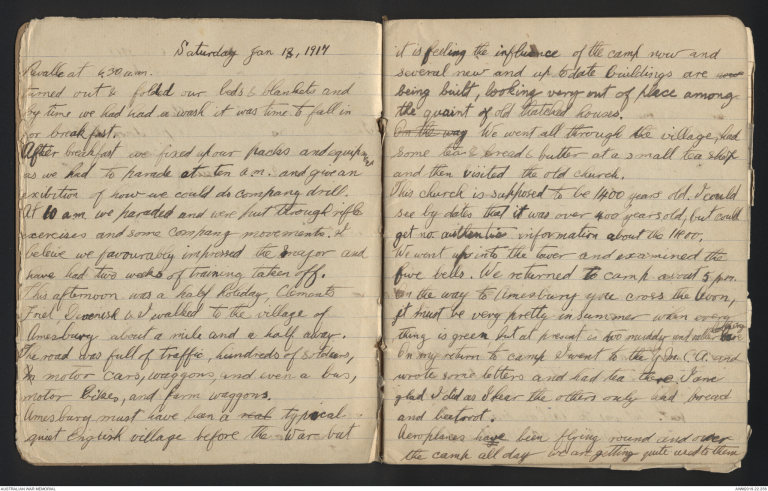 Saturday Jan 13, 1917
Revalle at 6.30 a.m.
turned out & folded our beds & blankets and
by time we had had a wash it was time to fall in
for breakfast.
After breakfast we fixed up our packs and equipment
as we had to parade at ten a.m. and give an
exibition of how we could do company drill.
At 10 a.m we paraded and were put through rifle
exercises and some company movements. I
beleive we favourably impressed the major and
have had two weeks of training taken off.
This afternoon was a half holiday, Clements
Fred & I walked to the village of
Amesbury about a mile and a half away.
The road was full of traffic, hundreds of soldiers,
motor cars, waggons, and even a bus,
motor bikes, and farm waggons.
Amesbury must have been a real typical
quiet English village before the war but
it is feeling the influence of the camp now and
several new and up to date buildings are now
being built, looking very out of place among
the quaint old thatched houses.
On the way We went all through the village, had
some tea & bread & butter at a small tea shop
and then visited the old church.
This church is supposed to be 1400 years old. I could
see by dates that it was over 400 years old, but could
get no authentic information about the 1400.
We went up into the tower and examined the
five bells. We returned to camp about 5 p.m.
On the way to Amesbury you cross the Avon,
it must be very pretty in summer when every
thing is green but at present is two muddy and
On my return to camp I went to the Y.M.C.A. and
wrote some letters and had tea there, I am
glad I did as I hear the others only had bread
and beetroot.
Aeroplanes have been flying round and over
the camp all day we are getting quite used to them
AUSTRALIAN WAR MEMORIAL